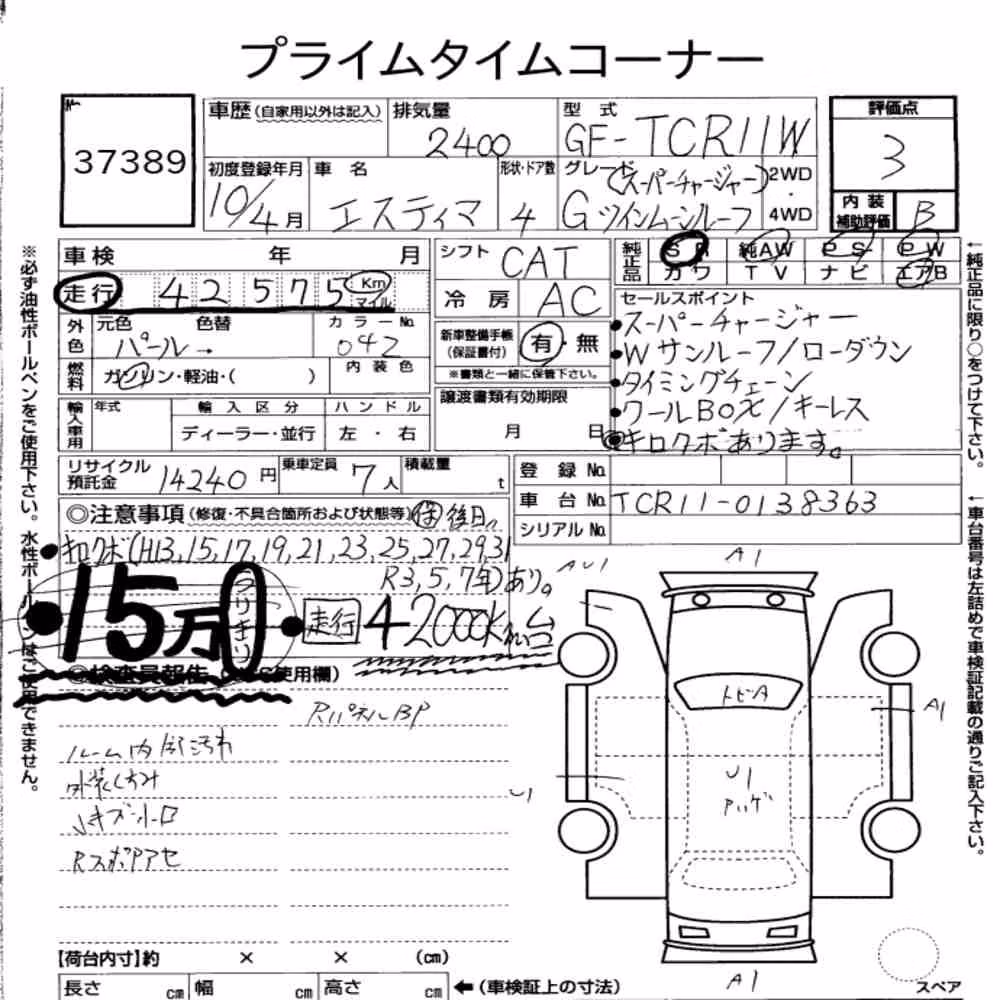 プライムタイムコーナー
37389
車歴 (自家用以外は記入)
排気量
2400
型式
GF-TCR11W
評価点
3
初度登録年月
10/4月
車名
エスティマ
形状・ドア数
4
グレード
(スーパーチャージャー)
Gツインムーンルーフ
2WD
・
4WD
内装
補助評価
B
車検 年 月
走行 42575 Km
マイル
シフト
CAT
冷房
AC
純正品
SR 純AW PS PW
カワ TV ナビ エアB
外色
元色 色替
パール→
カラーNo.
042
燃料
ガソリン・軽油・( )
内装色
新車整備手帳
(保証書付)
有・無
※書類と一緒に保管下さい。
セールスポイント
●スーパーチャージャー
●Wサンルーフ/ローダウン
●タイミングチェーン
●クールBOX/キーレス
●キロクボあります。
輸入車用
年式
輸入区分
ハンドル
ディーラー・並行
左・右
譲渡書類有効期限
月 日
リサイクル
預託金
14240円
乗車定員
7人
積載量
t
登録No.
車台No.
TCR11-0138363
シリアルNo.
◎注意事項(修復・不具合箇所および状態等) 保後日
●キロクボ(H13,15,17,19,21,23,25,27,29,31
R3,5,7年)あり。
●15万円
●走行 42000Km台
◎検査員報告
使用欄)
RパネルBP
ルーム内部汚れ
外装くすみ
Rスポアセ
A1
トビA
U1
A1
A1
U1
【荷台内寸】約 × × (cm)
長さ cm
幅 cm
高さ cm
←(車検証上の寸法)
スペア
※必ず油性ボールペンをご使用下さい。水性ボールペンはご使用できません。
←純正品に限り○をつけて下さい。
←車台番号は左詰めで車検証記載の通りご記入下さい。